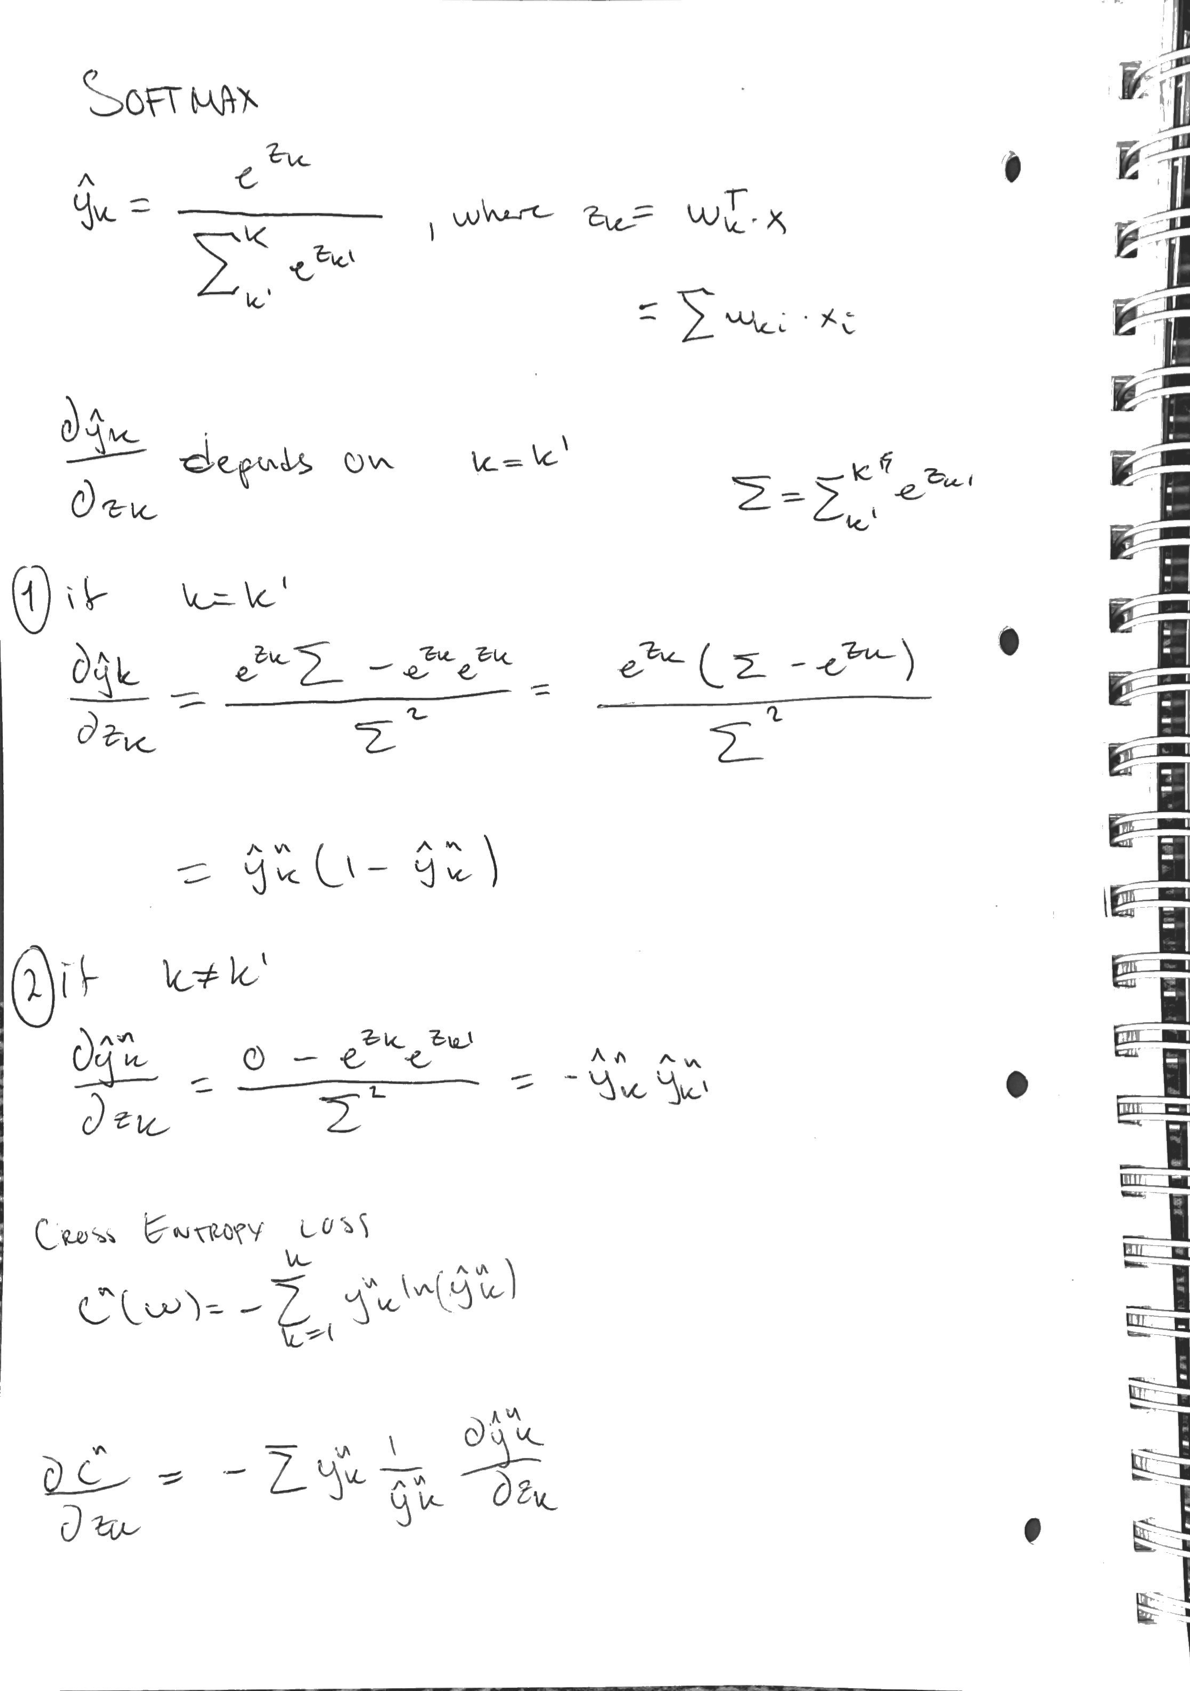 SOFTMAX
ŷₖ = e^{zₖ} / Σ_{k'}^{K} e^{z_{k'}} , where zₖ = wₖᵀ · x
= Σ wₖᵢ · xᵢ
∂ŷₖ / ∂zₖ depends on k = k'
Σ = Σ_{k'}^{K} e^{z_{k'}}
① if k = k'
∂ŷₖ / ∂zₖ = (e^{zₖ} Σ − e^{zₖ} e^{zₖ}) / Σ² = e^{zₖ} (Σ − e^{zₖ}) / Σ²
= ŷₖⁿ (1 − ŷₖⁿ)
② if k ≠ k'
∂ŷₖⁿ / ∂zₖ = (0 − e^{zₖ} e^{z_{k'}}) / Σ² = − ŷₖⁿ ŷ_{k'}ⁿ
CROSS ENTROPY LOSS
Cⁿ(w) = − Σ_{k=1}^{K} yₖⁿ ln(ŷₖⁿ)
∂Cⁿ / ∂zₖ = − Σ yₖⁿ 1/ŷₖⁿ ∂ŷₖⁿ / ∂zₖ